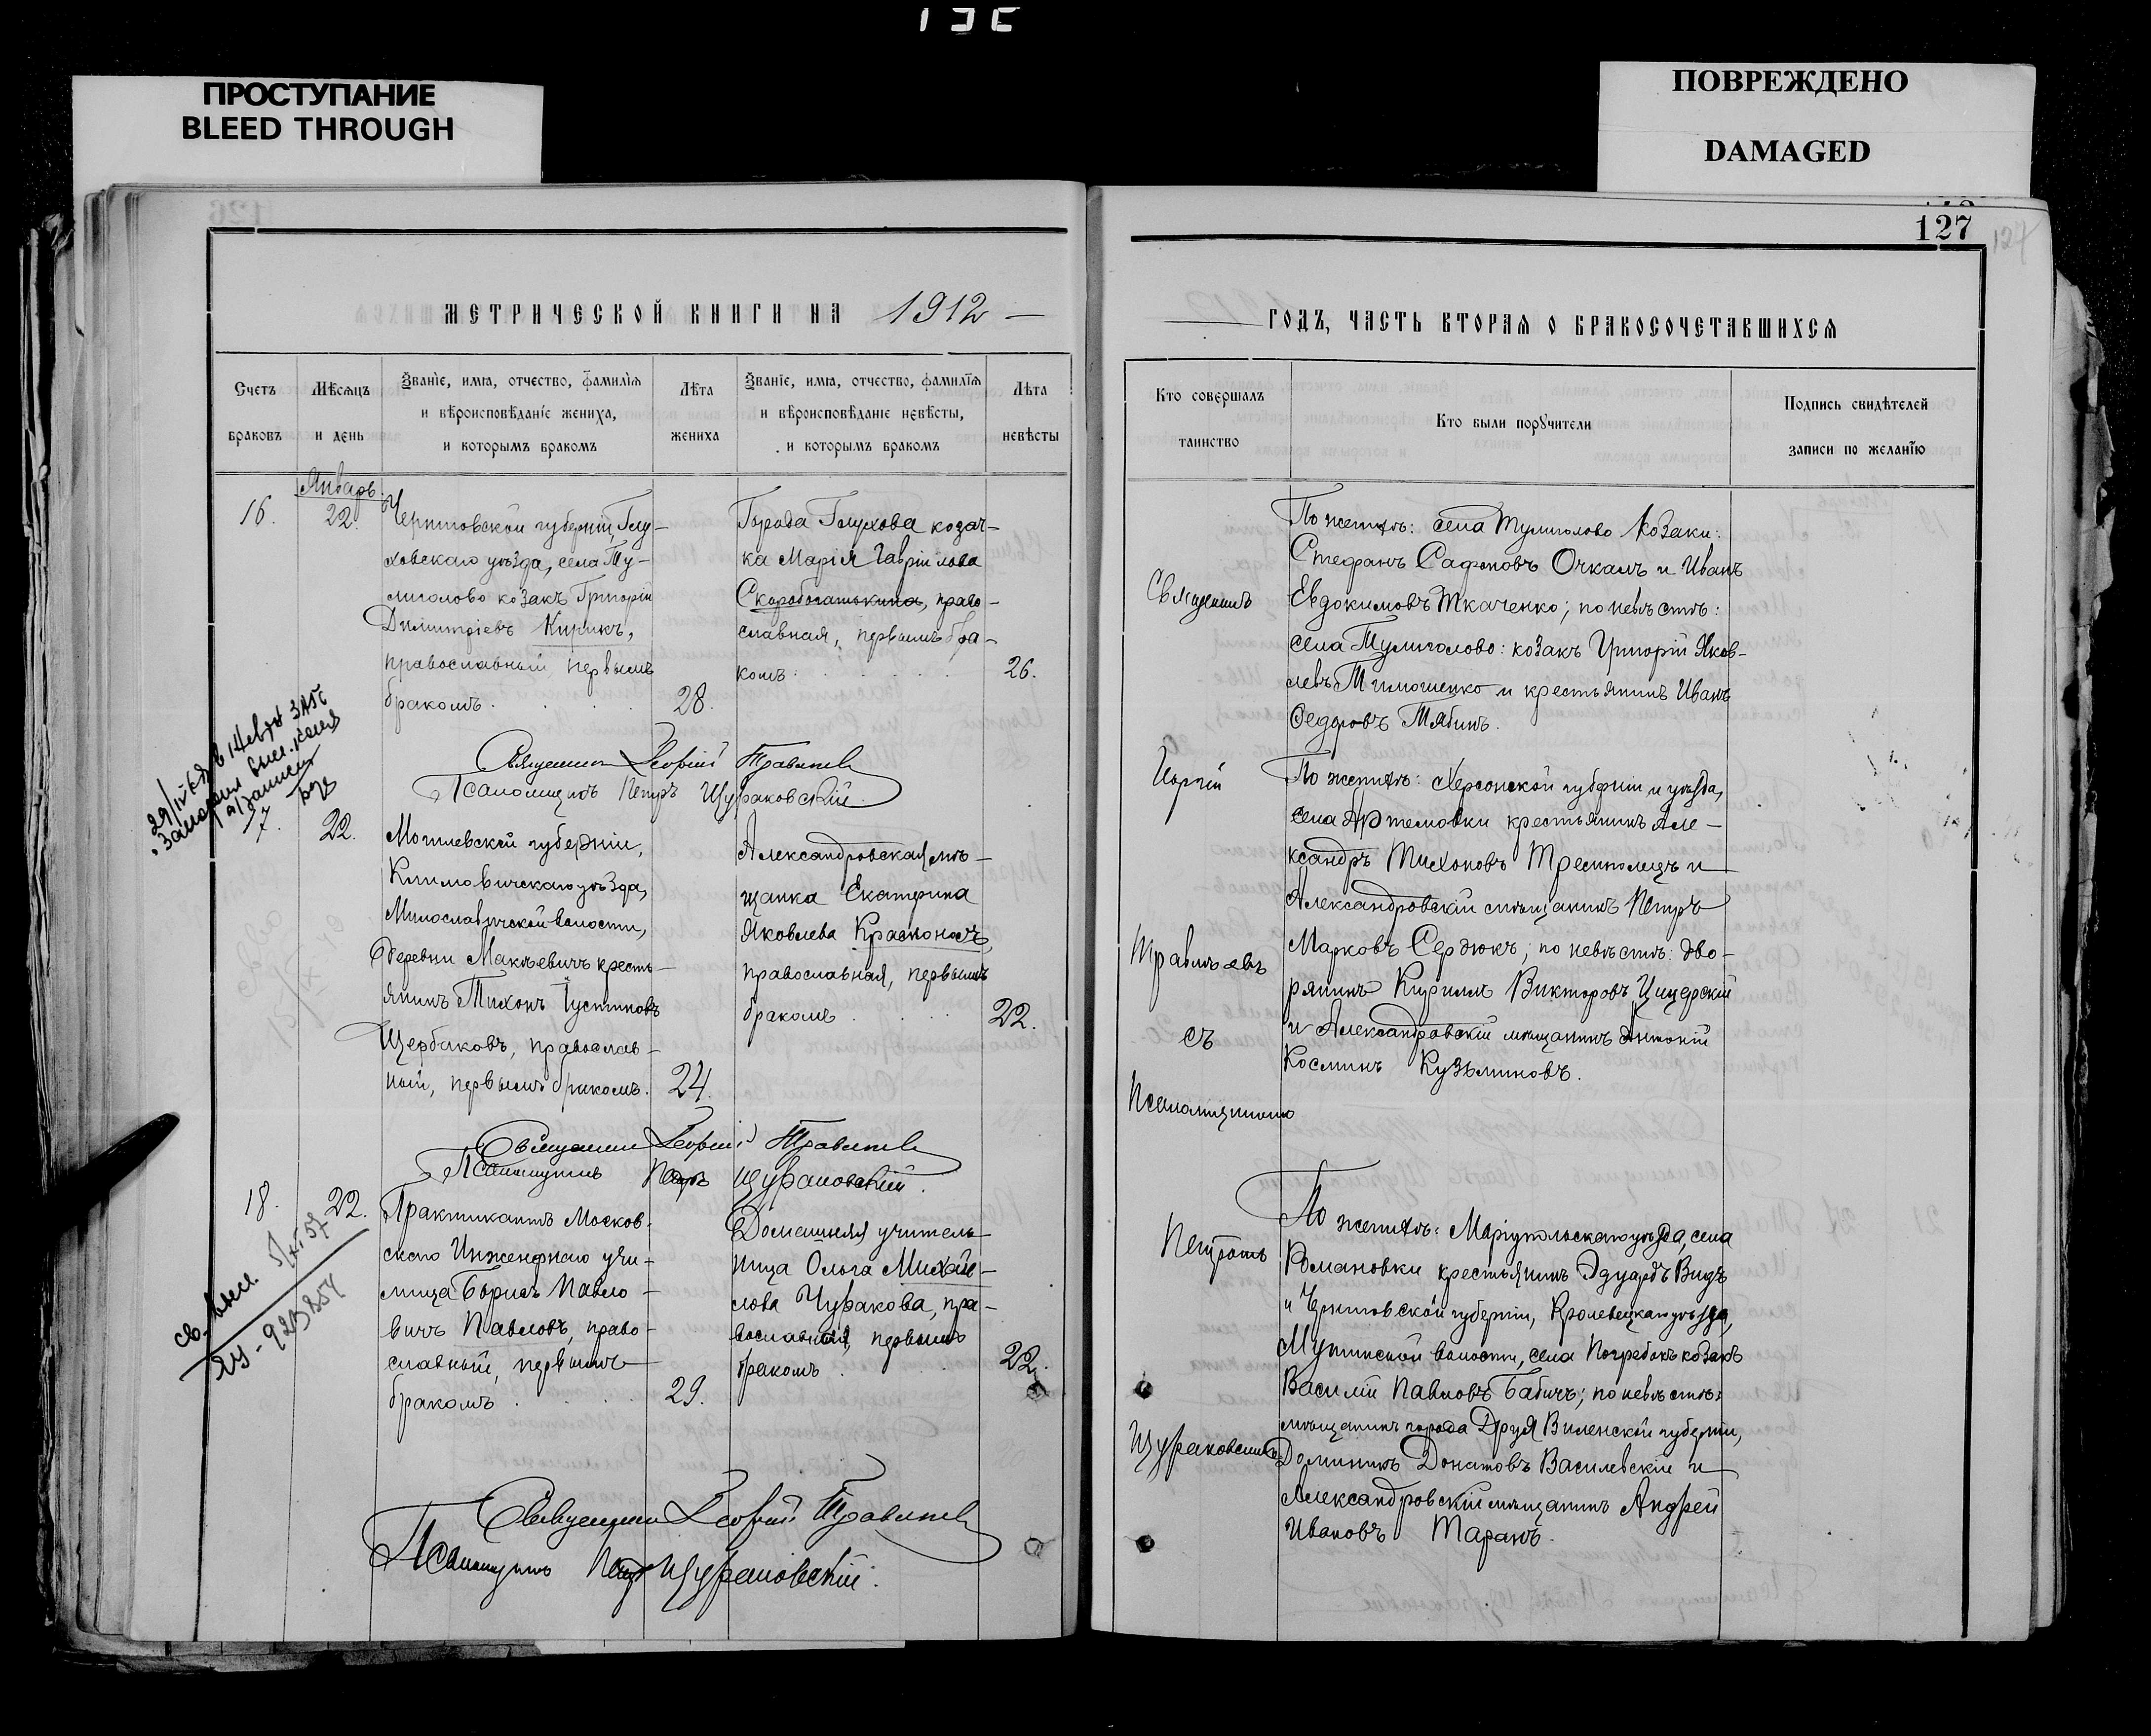 ПРОСТУПАНИЕ
BLEED THROUGH
ПОВРЕЖДЕНО
DAMAGED
127
127
МЕТРИЧЕСКОЙ КНИГИ НА 1912
Счетъ браковъ
Мѣсяцъ и день
Званіе, имя, отчество, фамилія
и вѣроисповѣданіе жениха,
и которымъ бракомъ
Лѣта жениха
Званіе, имя, отчество, фамилія
и вѣроисповѣданіе невѣсты,
и которымъ бракомъ
Лѣта невѣсты
Январь.
16.
22.
Черниговской губерніи, Глу-
ховскаго уѣзда, села Ту-
лиголово козакъ Григорій
Димитріевъ Кирикъ,
православный, первымъ
бракомъ.
28.
Города Глухова козач-
ка Марія Гавріилова
Скоробогатькина, право-
славная, первымъ бра-
комъ.
26.
Священникъ Георгій
Псаломщикъ Петръ Щураковскій.
17.
22.
Могилевской губерніи,
Климовичскаго уѣзда,
Милославичской волости,
деревни Макѣевичъ кресть-
янинъ Тихонъ Іустиновъ
Щербаковъ, православ-
ный, первымъ бракомъ.
24.
Александровская мѣ-
щанка Екатерина
Яковлева Красноносъ,
православная, первымъ
бракомъ
22.
Священникъ Георгій
Псаломщикъ Петръ Щураковскій.
18.
22.
Практикантъ Москов-
скаго Инженернаго учи-
лища Борисъ Павло-
вичъ Павловъ, право-
славный, первымъ
бракомъ
29.
Домашняя учитель-
ница Ольга Михай-
лова Чуракова, пра-
вославная, первымъ
бракомъ
22.
Священникъ Георгій
Псаломщикъ Петръ Щураковскій.
ГОДЪ, ЧАСТЬ ВТОРАЯ О БРАКОСОЧЕТАВШИХСЯ
Кто совершалъ таинство
Кто были поручители
Подпись свидѣтелей
записи по желанію
Священникъ
Георгій
съ
Псаломщикомъ
Петромъ
Щураковскимъ
По женихѣ: села Тулиголово козаки:
Стефанъ Сафоновъ Очкалъ и Иванъ
Евдокимовъ Ткаченко; по невѣстѣ:
села Тулиголово: козакъ Григорій Яков-
левъ Тимошенко и крестьянинъ Иванъ
Ѳедоровъ Тябинъ.
По женихѣ: Херсонской губерніи и уѣзда,
села Артемовки крестьянинъ Але-
ксандръ Тихоновъ и
Александровскій мѣщанинъ Петръ
Марковъ Сердюкъ; по невѣстѣ: дво-
рянинъ Кириллъ Викторовъ
и Александровскій мѣщанинъ Антоній
Косминъ Кузьминовъ.
По женихѣ: Маріупольскаго уѣзда, села
Романовки крестьянинъ Эдуардъ Видъ
и Черниговской губерніи, Кролевецкаго уѣзда,
Мутинской волости, села Погребокъ козакъ
Василій Павловъ Бабичъ; по невѣстѣ:
мѣщанинъ города Друя Виленской губерніи,
Доминикъ Донатовъ Василевскій и
Александровскій мѣщанинъ Андрей
Ивановъ Таранъ.